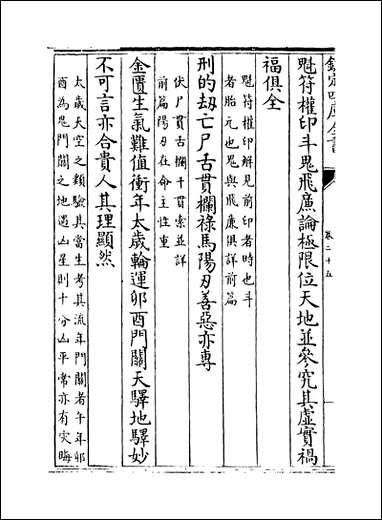 欽定四庫全書
卷二十五
魁符權印斗鬼飛廣論極限位天地並參究其虛實禍
福俱全
魁符權印辨見前印者時也斗
者胎元也鬼與飛廉俱詳前篇
刑的劫亡尸古貫欄祿馬陽刃善惡亦專
伏尸貫古欄干貫索並詳
前篇陽刃在命主性重
金匱生氣難值衝年太歲輪運卯酉門關天驛地驛妙
不可言亦合貴人其理顯然
太歲天空之類驗其當生考其流年門關者午年卯
酉為鬼門關之地遇凶星則十分凶平常亦有灾晦